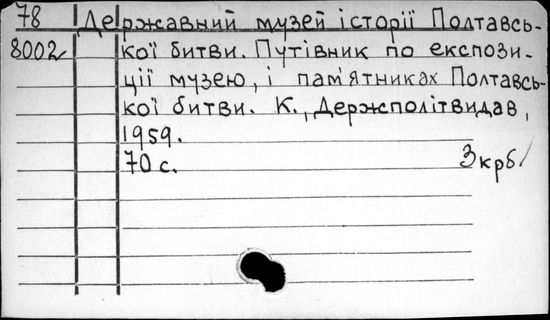 78 Державний музей історії Полтавсь-
8002 кої битви. Путівник по експози-
ції музею, і пам'ятниках Полтавсь-
кої битви. К., Держполітвидав,
1959.
70 с. 3 крб.